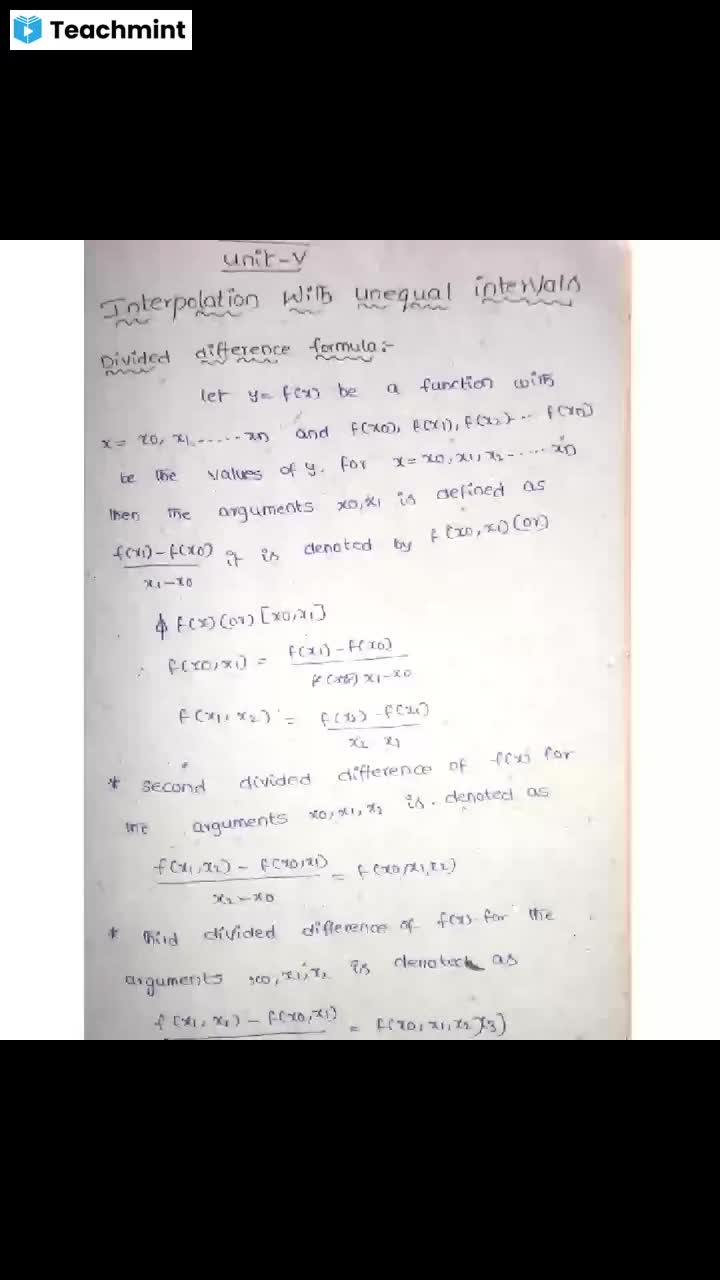 Teachmint
unit-V
Interpolation With unequal intervals
Divided difference formula:-
let y= f(x) be a function with
x= x0, x1...... xn and f(x0), f(x1), f(x2)... f(xn)
be the values of y. for x=x0, x1, x2-.....xn
then the arguments x0,x1 is defined as
f(x1)-f(x0) it is denoted by f(x0,x1) (or)
x1-x0
f(x) (or) [x0,x1]
∴ f(x0,x1) = f(x1)-f(x0)
x1-x0
f(x1,x2) = f(x2)-f(x1)
x2 x1
* second divided difference of f(x) for
the arguments x0,x1,x2 is. denoted as
f(x1,x2) - f(x0,x1) = f(x0,x1,x2)
x2-x0
* third divided difference of f(x) for the
arguments x0,x1,x2 is denoted as
f(x1,x2) - f(x0,x1) = f(x0,x1,x2,x3)